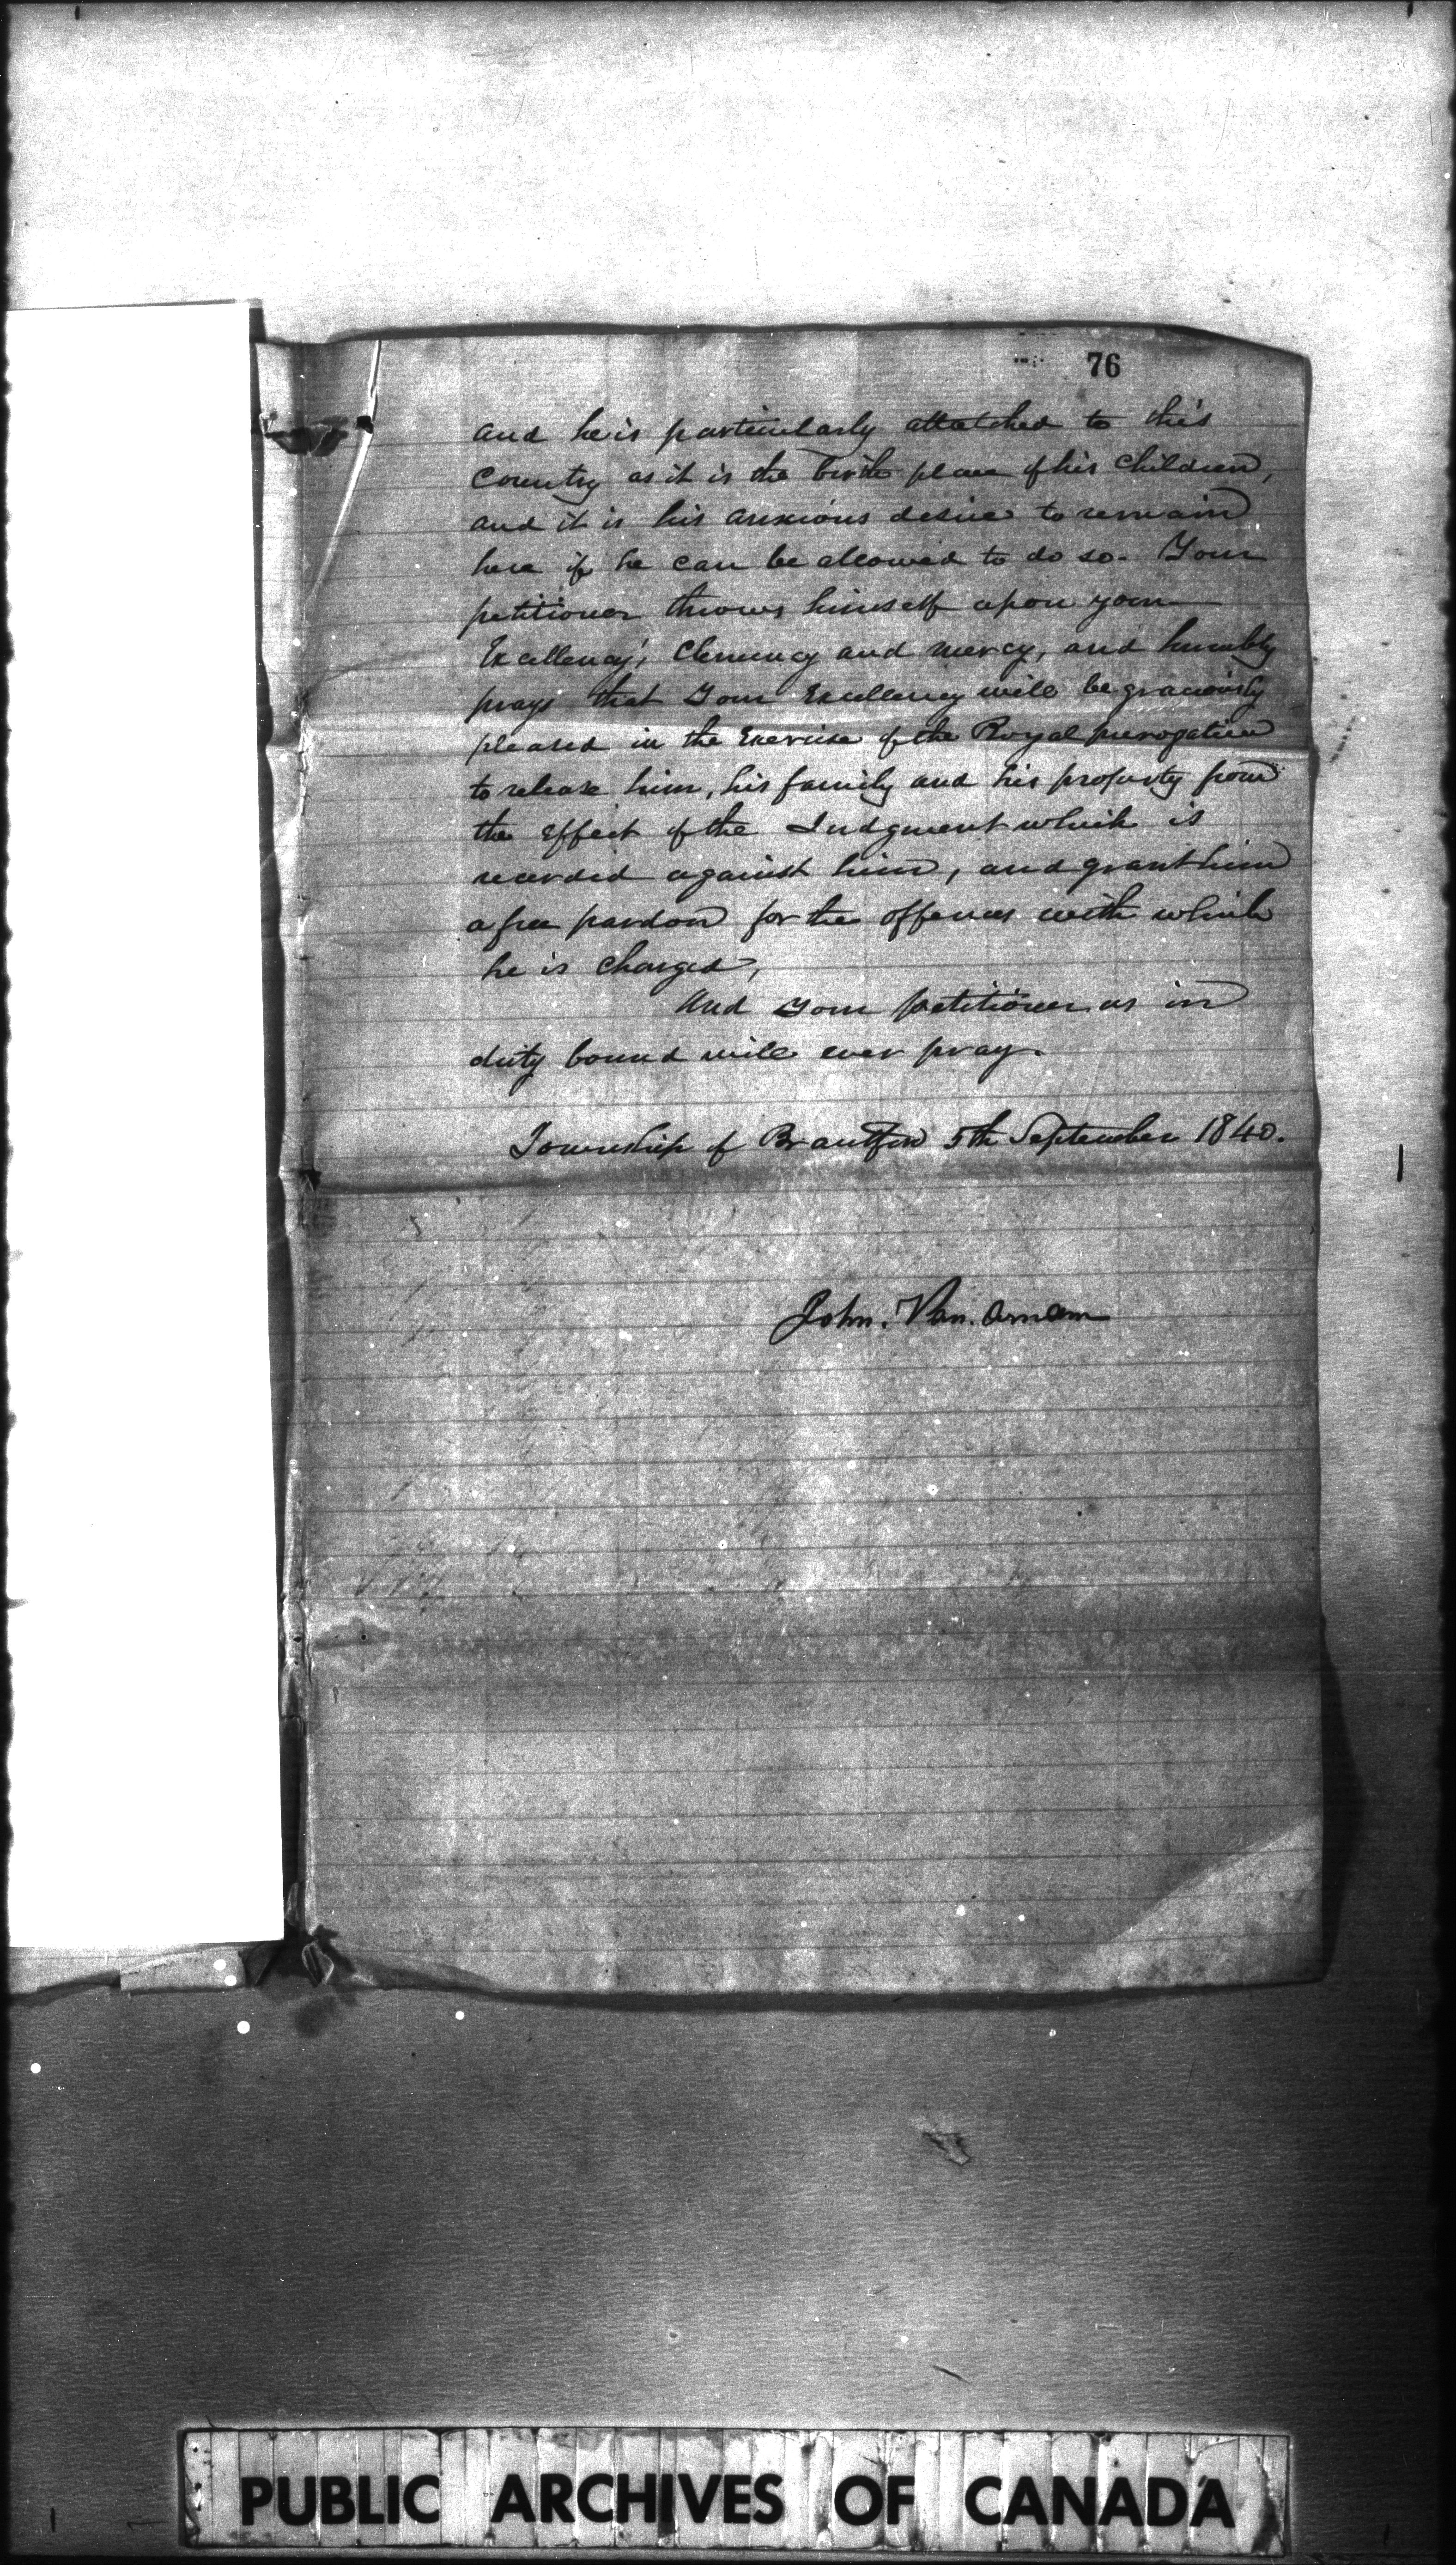 76
and he is particularly attatched to this
Country as it is the birth place of his Children,
and it is his anxious desire to remain
here if he can be allowed to do so. Your
petitioner throws himself upon your
Excellency's Clemency and mercy, and humbly
prays that Your Excellency will be graciously
pleased in the Exercise of the Royal prerogative
to release him, his family and his property from
the effect of the Judgment which is
recorded against him, and grant him
a free pardon for the offences with which
he is Charged,
And your petitioner as in
duty bound will ever pray.
Township of Brantford 5th September 1840.
John. Van. Arnam
PUBLIC ARCHIVES OF CANADA